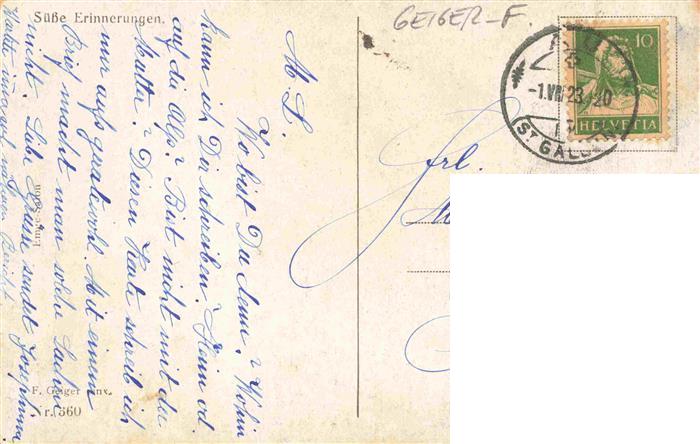 Süße Erinnerungen.
GEIGER-F.
10
HELVETIA
-1.VIII.23.-20
(ST. GALLEN)
M. L.
Wo bist Du denn? Wohin
kann ich Dir schreiben? Heim od.
auf die Alp? Bist nicht mit der
Mutter? Diesen Karte schreib ich
nur aufs geratewohl. Mit einem
Brief macht man solche Sachen
nicht. Liebe Grüsse sendet Josephine
Warte immer auf Bericht
Frl.
F. Geiger pinx.
Nr. 360